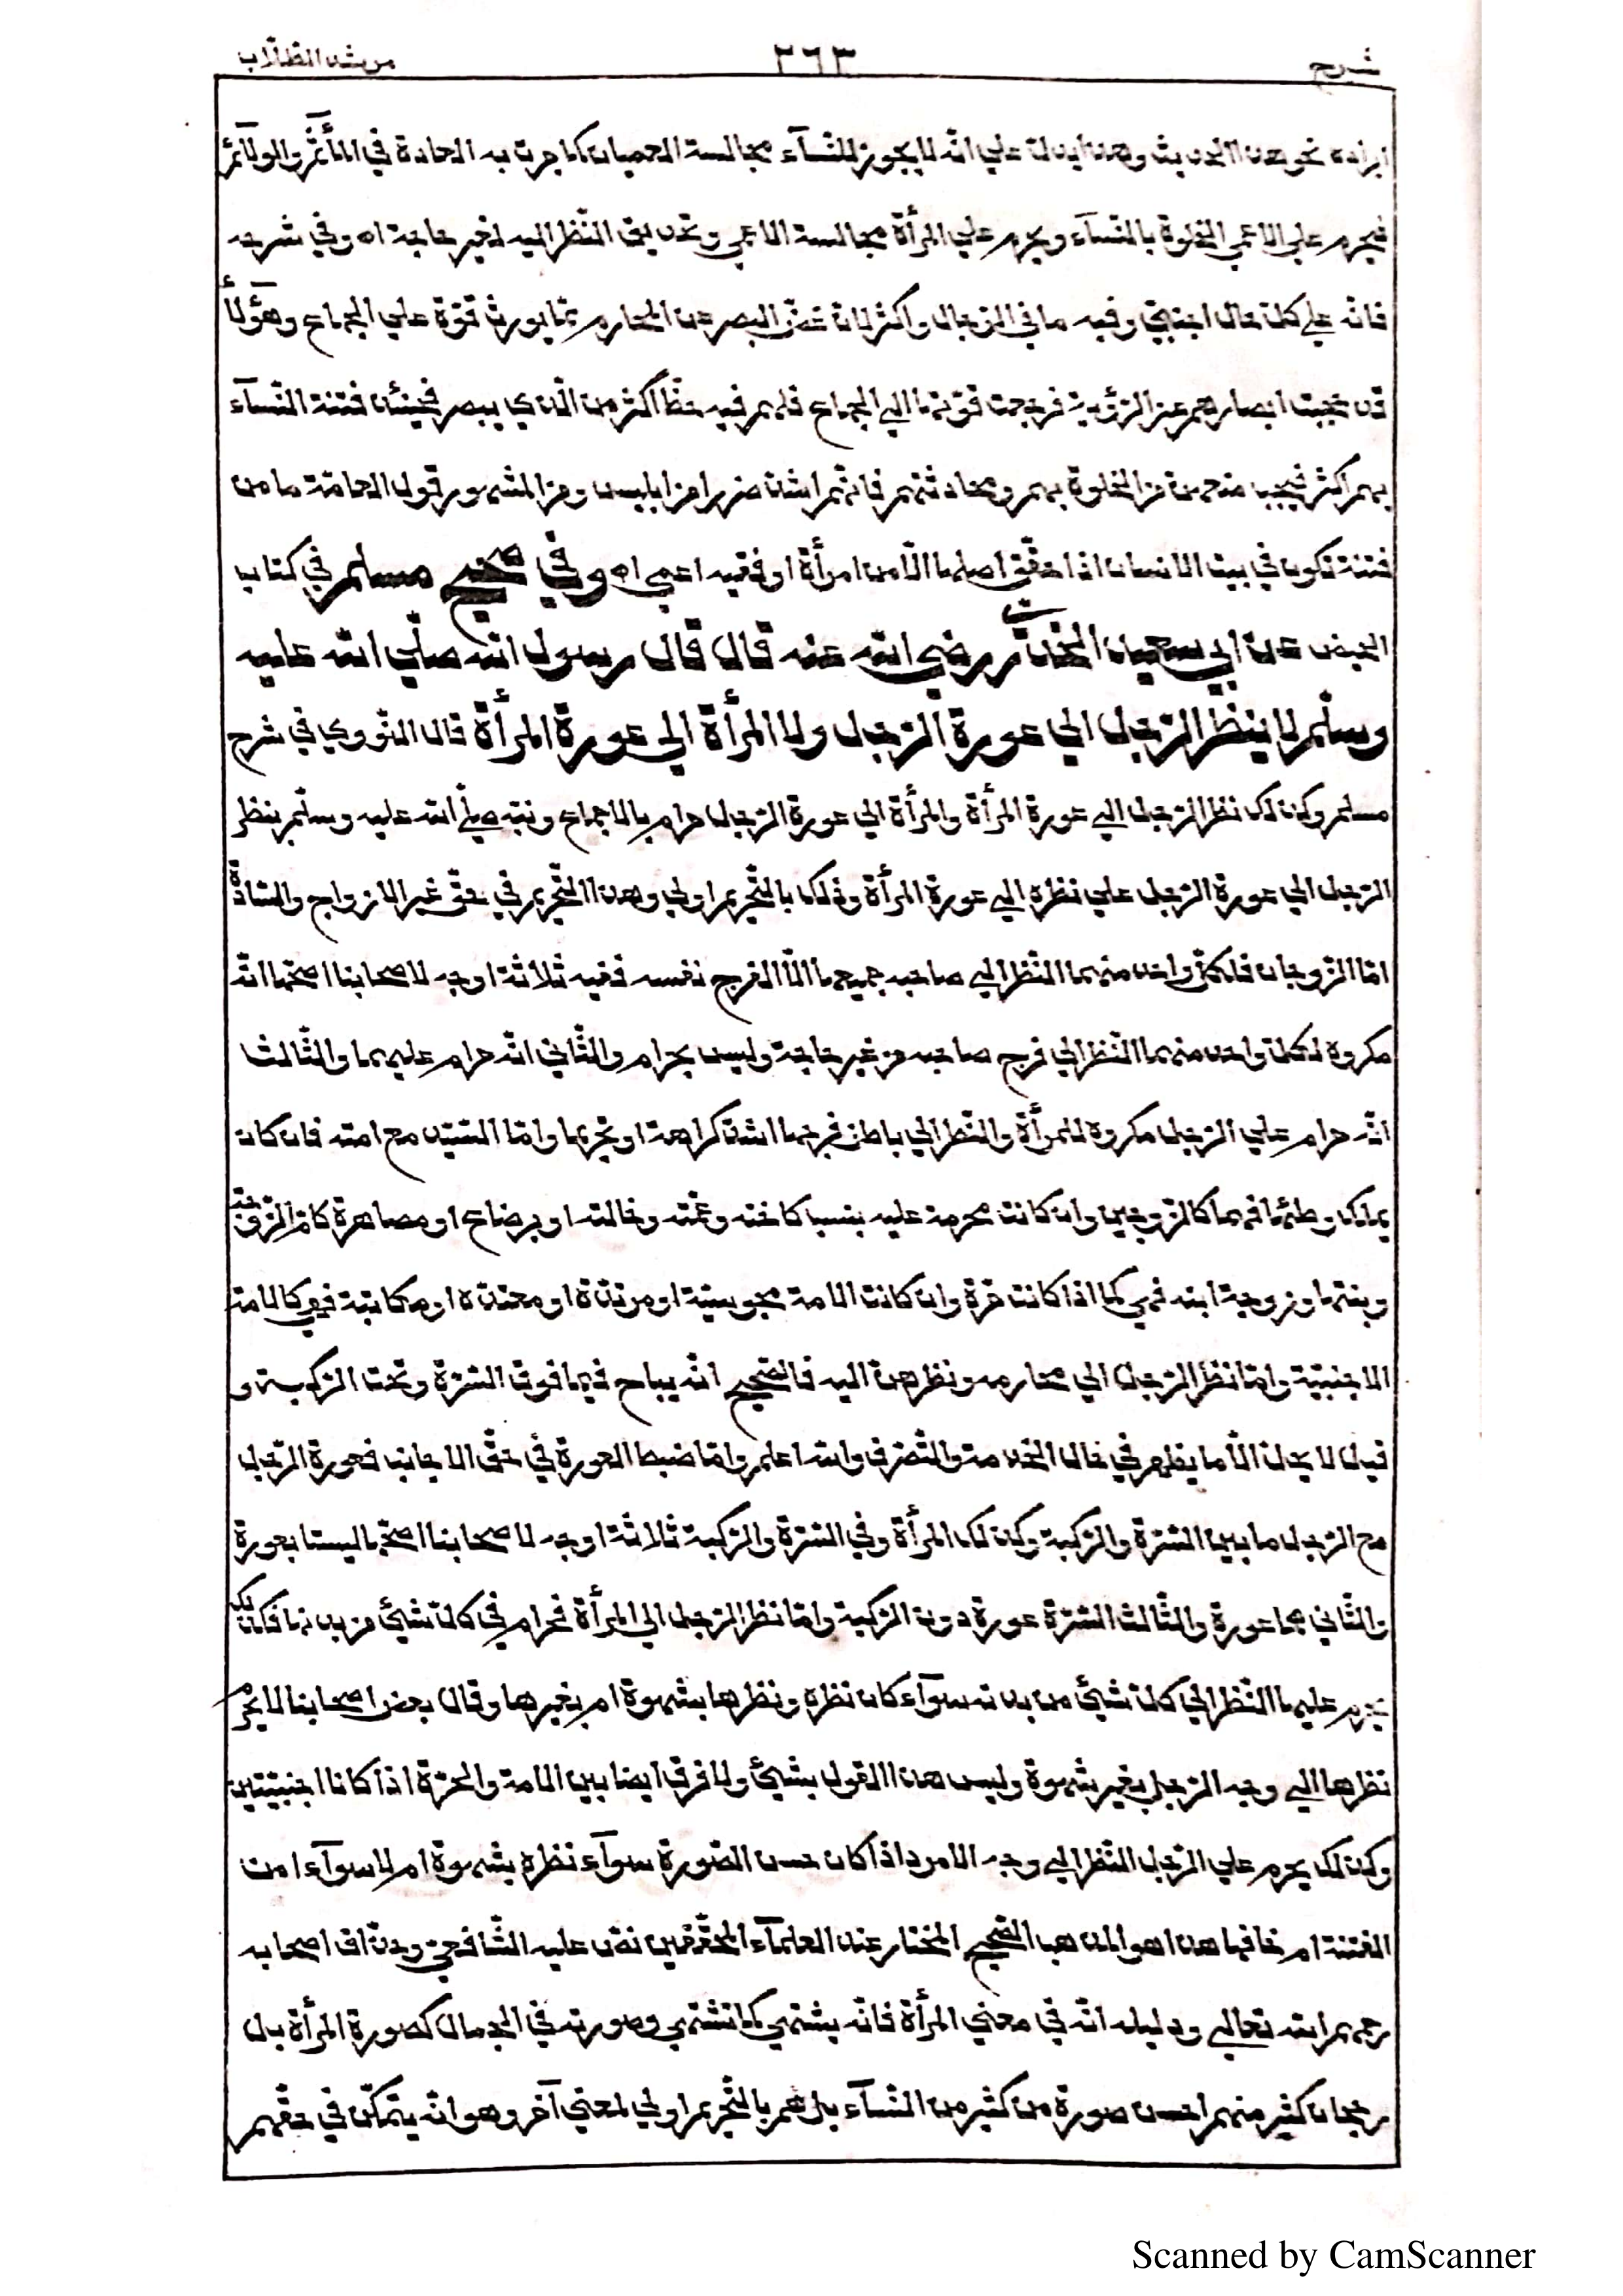 شرح ٣٦٣ مرشد الطلّاب
ايراده نحو هذا الحديث وهذا يدلّ علي انّه لا يجوز للنّسآء مجالسة العميان كما جرت به العادة في المأتم والولآئم
فيحرم علي الاعمي الخلوة بالنّسآء ويحرم علي المرأة مجالسة الاعمي وتحديق النّظر اليه لغير حاجة اه وفي شرحه
فانّه علي كلّ حال اجنبيّ وفيه ما في الرّجال واكثر لانّ غضّ البصر عن المحارم ممّا يورث قوّة علي الجماع وهؤلآء
قد حجبت ابصارهم عن الرّؤية فرجعت قوّتها الي الجماع فلهم فيه حظّ اكثر من الّذي يبصر فحينئذ فتنة النّسآء
بهم اكثر فيجب منعهنّ من الخلوة بهم ومحادثتهم فانّهم اشدّ ضررا من ابليس ومن المشهور قول العامّة ما من
فتنة تكون في بيت الانسان اذا حقّق اصلها الّا من امرأة او فقيه اعمي اه وفي صحيح مسلم في كتاب
الحيض عن ابي سعيد الخدريّ رضي الله عنه قال قال رسول الله صلّي الله عليه
وسلّم لا ينظر الرّجل الي عورة الرّجل ولا المرأة الي عورة المرأة قال النّوويّ في شرح
مسلم وكذلك نظر الرّجل الي عورة المرأة والمرأة الي عورة الرّجل حرام بالاجماع ونبّه صلّي الله عليه وسلّم بنظر
الرّجل الي عورة الرّجل علي نظره الي عورة المرأة وذلك بالتّحريم اولي وهذا التّحريم في حقّ غير الازواج والسّادة
امّا الزّوجان فلكلّ واحد منهما النّظر الي صاحبه جميعها الّا الفرج نفسه ففيه ثلاثة اوجه لاصحابنا اصحّها انّه
مكروه لكلّ واحد منهما النّظر الي فرج صاحبه من غير حاجة وليس بحرام والثّاني انّه حرام عليهما والثّالث
انّه حرام علي الرّجل مكروه للمرأة والنّظر الي باطن فرجها اشدّ كراهة او تحريما وامّا السّيّد مع امته فان كان
يملك وطئها فهما كالزّوجين وان كانت محرمة عليه بنسب كاخته وعمّته وخالته او برضاع او مصاهرة كامّ الزّوجة
وبنتها وزوجة ابنه فهي كما اذا كانت حرّة وان كانت الامة مجوسيّة او مرتدّة او معتدّة او مكاتبة فهي كالامة
الاجنبيّة وامّا نظر الرّجل الي محارمه ونظرهنّ اليه فالصّحيح انّه يباح فيما فوق السّرّة وتحت الرّكبة و
قيل لا يحلّ الّا ما يظهر في حال الخدمة والتّصرّف والله اعلم وامّا ضبط العورة في حقّ الاجانب فعورة الرّجل
مع الرّجل ما بين السّرّة والرّكبة وكذلك المرأة وفي السّرّة والرّكبة ثلاثة اوجه لاصحابنا اصحّها ليستا بعورة
والثّاني هما عورة والثّالث السّرّة عورة دون الرّكبة وامّا نظر الرّجل الي المرأة فحرام في كلّ شيئ من بدنها فكذلك
يحرم عليها النّظر الي كلّ شيئ من بدنه سوآء كان نظره ونظرها بشهوة ام بغيرها وقال بعض اصحابنا لا يحرم
نظرها الي وجه الرّجل بغير شهوة وليس هذا القول بشيئ ولا فرق ايضا بين الامة والحرّة اذا كانا اجنبيّتين
وكذلك يحرم علي الرّجل النّظر الي وجه الامرد اذا كان حسن الصّورة سوآء نظره بشهوة ام لا سوآء امن
الفتنة ام خافها هذا هو المذهب الصّحيح المختار عند العلمآء المحقّقين نصّ عليه الشّافعيّ وحذّاق اصحابه
رحمهم الله تعالي ودليله انّه في معني المرأة فانّه يشتهي كما تشتهي وصورته في الجمال كصورة المرأة بل
ربّما كان كثير منهم احسن صورة من كثير من النّسآء بل هم بالتّحريم اولي لمعني آخر وهو انّه يتمكّن في حقّهم
Scanned by CamScanner